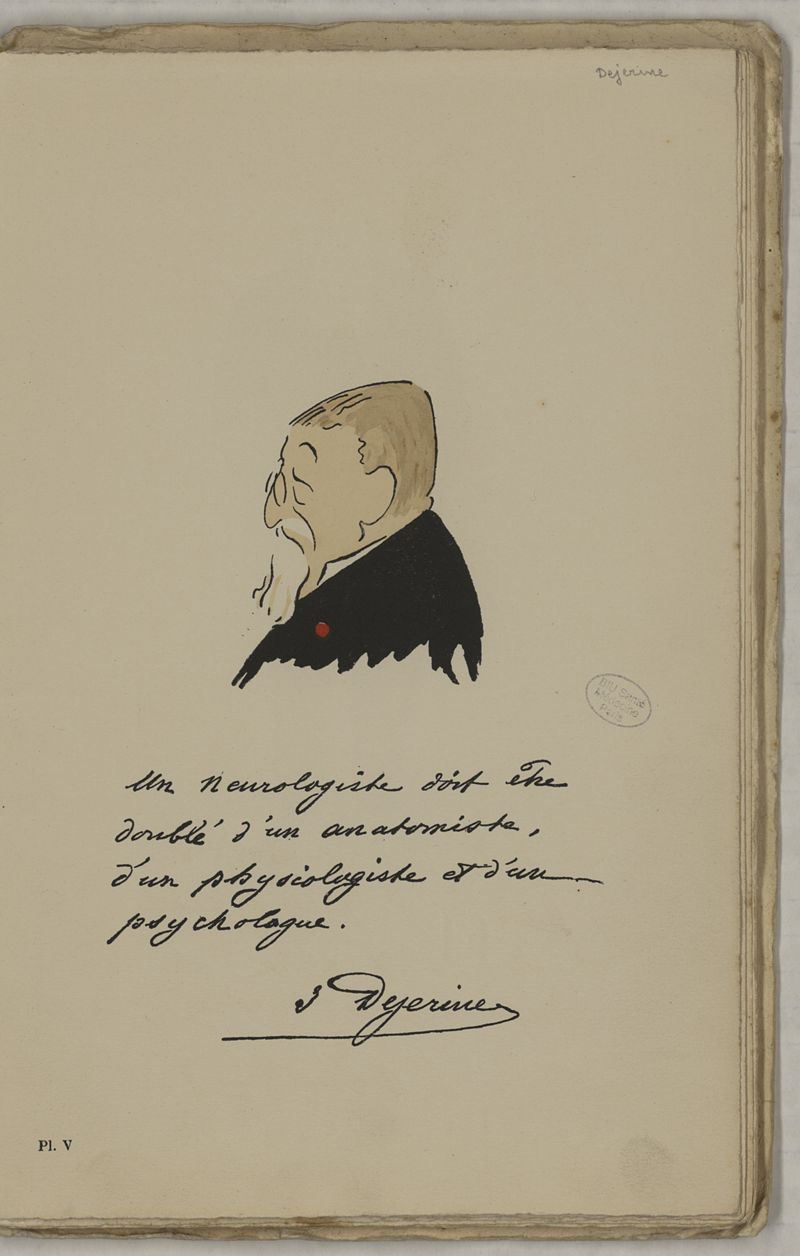 Dejerine
BIU Santé
Médecine
Paris
Un neurologiste doit être
doublé d'un anatomiste,
d'un physiologiste et d'un
psychologue.
J Dejerine
Pl. V